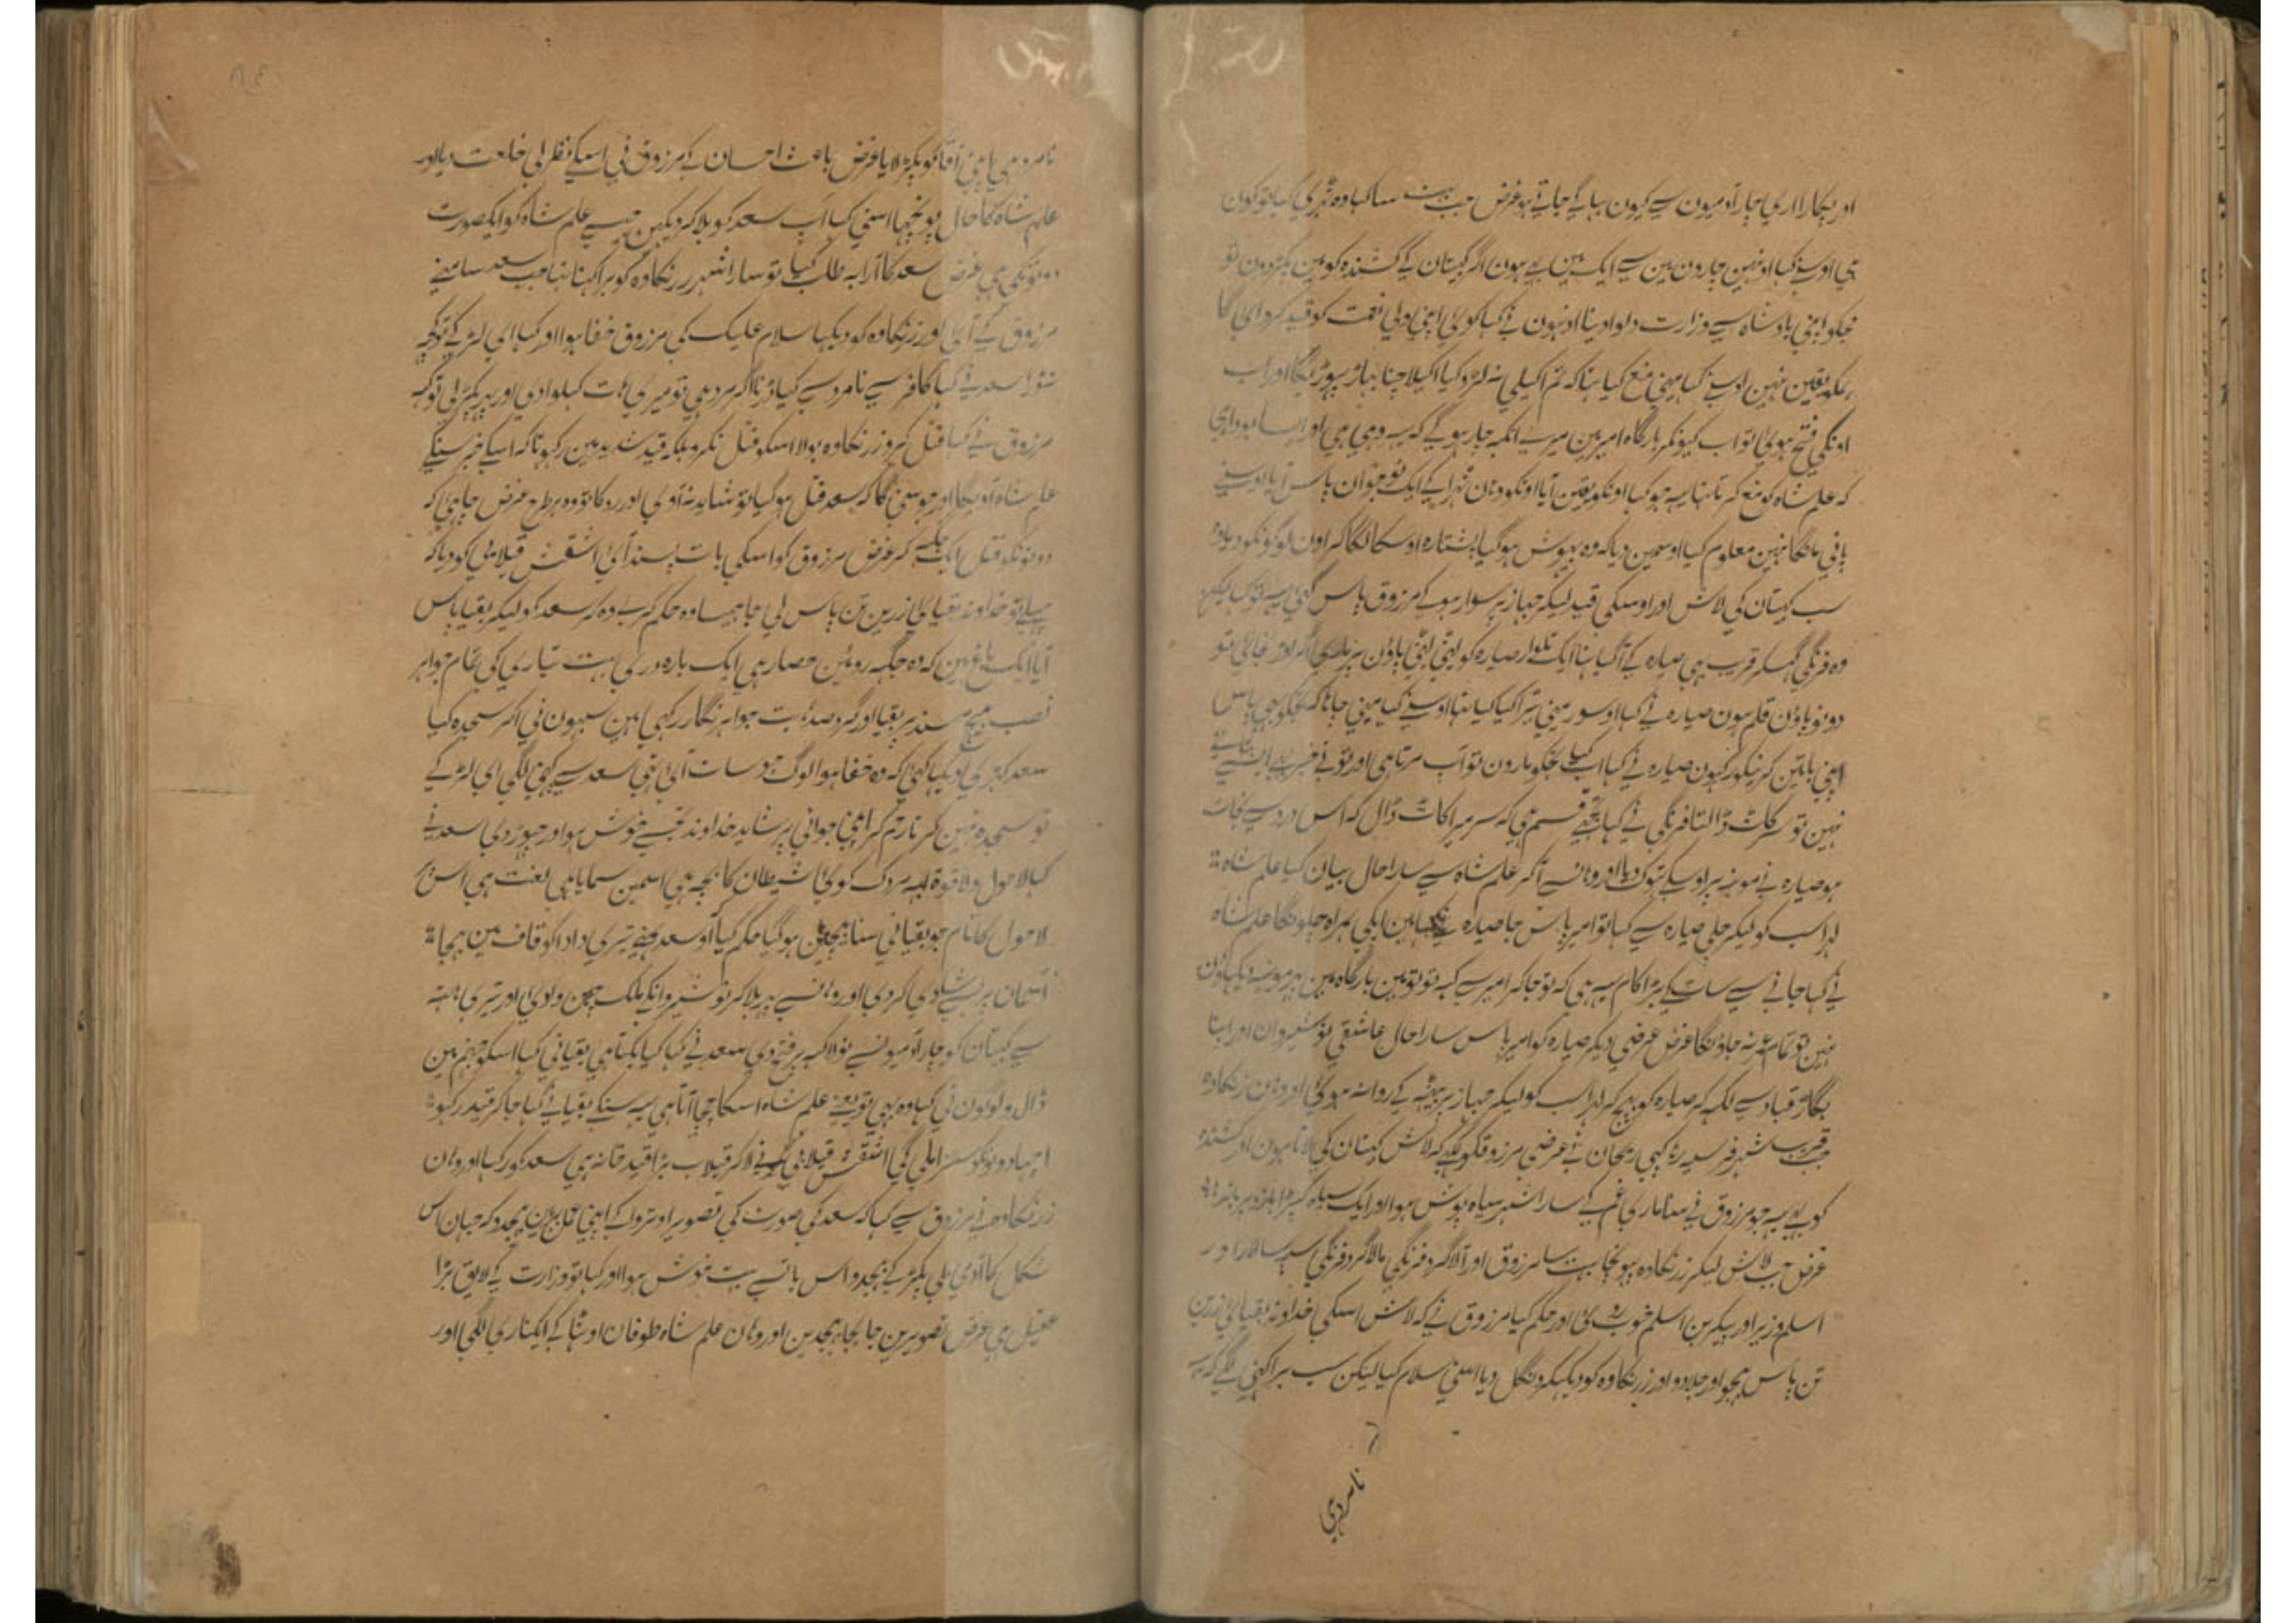 اور پکارا اری چار آدمیون سے کیون بہاگے جاتے ہو غرض جب بہت سا کہا وہ ٹہری کہا تو کون
ہی اوسنے کہا اونہین چارون مین سے ایک مین بہی ہون اگر کپتان کے کشندہ کو مین پکڑ دون تو
مجکو اپنی بادشاہ سے وزارت دلوا دینا اونہون نے کہا کوئی اپنی ولی نعمت کو قید کروای گا
ہمکو یقین نہین اوسنے کہا مینی منع کیا تہا کہ تم اکیلی نہ لڑو کیا اکیلا چنا بہاڑ پہوڑیگا اور اب
اونکی فتح ہوئی تو اب کیونکر بارگاہ امیر مین میرے انکہہ چار ہوگے کہ یہ وہی ہی اور
کہ علم شاہ کو منع کرتا تہا یہ جو کہا اونکو یقین آیا اونکو وہان ٹہرا کے ایک نوجوان پاس آیا اوسنے
پانی مانگا انہین معلوم کیا اوسمین دیا کہ وہ بیہوش ہوگیا پشتارہ اوسکا لگا کر اون لوگونکو دیا وہ
سب کپتان کی لاش اور اوسکی قید لیکر جہاز پر سوار ہوکے مرزوق پاس گئی
وہ فرنگی گہسکر قریب ہی صیارہ کے آگیا تہا ایک تلوار صیارہ کو لیٹی لیٹی پاؤن پر ماری اگر اور جائی تو
دونو پاؤن قلم ہون صیارہ نے کہا او سور مینی تیرا کیا کیا تہا اوسنے کہا مینی جانا کہ مجکو جی پاس
اپنی باتین کرنیکو رکہون صیارہ نے کہا اب کیا مجکو مارون تو آپ مرتا ہی اور تونے
نہین تو سر کاٹ ڈالتا فرنگی نے کہا تجہے قسم ہی کہ سر میرا کاٹ ڈال کہ اس درد سے نجات
ہو صیارہ نے مونہہ پر اوسکے تہوک دیا اور وہانسے آکر علم شاہ سے سارا حال بیان کیا علم شاہ
لہراسب کو لیکر چلی صیارہ سے کہا تو امیر پاس جا صیارہ نے کہا مین اپکی ہمراہ چلونگا علم شاہ
نے کہا جانے سے سات کے بڑا کام یہ ہی کہ تو جا کر امیر سے کہہ تو تو مین بارگاہ مین پہر مونہہ دیکہاؤن
نہین تو تمام عمر نہ جاؤنگا غرض عرضی دیکر صیارہ کو امیر پاس سارا حال عاشقی نوشیروان اور اپنا
بگاڑ قباد سے لکہہ کر صیارہ کو بہیج کر لہراسب کو لیکر جہاز پر بیٹہہ کے روانہ ہوئی اور وہان زرنگادہ
جب قریب شہر فرسید رہ گئی ریحان نے عرضی مرزوق کو لکہے کہ لاش کپتان کی لاتا ہون اور کشندہ
کو بہی یہ جو مرزوق نے سنا ماری غم کے سارا شہر سیاہ پوش ہوا اور ایک سیاہ کپڑا بازو پر باندہا
غرض جب لاش لیکر زرنگادہ پہونچا بہت سا مرزوق اور آلاگرد فرنگی مالاگرد فرنگی سپہ سالار اور
اسلم وزیر اور پیکر بن اسلم خوب روئی اور حکم کیا مرزوق نے کہ لاش اسکی خداوند بقیائی زرین
تن پاس بہیجو اور جلادو اور زرنگاوہ کو دیکہکر دنگل دیا اسنی سلام کیا لیکن سب برا کہنی لگے کہ یہ
نامردہی
نامرد ہی اپنی آقا کو پکڑ لایا غرض باعث احسان کے مرزوق نی اسکے نظر لی خلعت دیا اور
علم شاہ کا حال پونچہا اسنی کہا آپ سعد کو بلا کر دیکہین جیسے علم شاہ کو ایک صورت
دونونکی ہی غرض سعد کا آرابہ طلب کیا تو سارا شہر زرنگادہ کو برا کہتا تہا جب سعد سامہنے
مرزوق کے آئی اور زرنگادہ کو دیکہا سلام علیک کی مرزوق خفا ہوا اور کہا ای لڑکے تو کچہہ
نڈرا سعد نے کہا کافر سے نامرد سے کیا ڈرنا اگر مرد ہی تو میری ہات کہلوا دی اور پہر پکڑ لی تو کہہ
مرزوق نے کہا قتل کرو زرنگاوہ بولا اسکو قتل نکرو بلکہ قید شدید مین رکہو تا کہ اسکے خبر سنکے
علم شاہ آویگا اور جو سنی گا کہ سعد قتل ہوگیا تو شاید نہ آوی اور روکا تو وہ ہر طرح غرض چاہئی کہ
دونونکو قتل ایک جگہہ کر غرض مرزوق کو اسکی بات پسند آئی اشقش قیلابی کو دیا کہ
پہلے تو خداوند بقیائی زرین تن پاس لی جا جیسا وہ حکم کرے وہ کر سعد کو لیکر بقیا پاس
آیا ایک باغ مین کہ وہ جگہہ روئین حصار ہی ایک بارہ دری بہت تیاری کی تمام جواہر
نصب بیچ مسند پر بقیا اور گرد صدہا بت جواہر نگار رکہی ہین سبہون نی اکر سجدہ کیا
سعد کہڑی دیکہا کئی کہ وہ خفا ہوا لوگ جو سات آئی تہی سعد سے کہنی لگی ای لڑکے
تو سجدہ نہین کرتا رحم کر اپنی جوانی پر شاید خداوند تجہسے خوش ہو اور چہوڑ دی سعد نے
کہا لاحول ولا قوۃ ابے مردک کوئی شیطان کا بچہ ہی اسمین سمایا ہی لعنت ہی اس پر
لاحول کا نام جو بقیا نی سنا بیچین ہو گیا حکم کیا آو سعد مینے تیری دادا کو قاف مین بہیجا
آسمان پر شادی کردی اور وہانسے پہر بلا کر نوشیروانکے ملک چہین وادی اور تیری ہاتہہ
سے کپتان کو چار آدمیونسے تولا کہہ پر فتح دی سعد نے کہا کیا بکتا ہی بقیانی کہا اسکو جہنم مین
ڈال دو لوگون نی کہا وہ بہی تو یعنے علم شاہ اسکا چچا آتا ہی یہ سنکے بقیانے کہا جا کر قید رکہو
اچہا دونوکو سزا ملی گی اشقش قیلابی نے لا کر قیلاب بڑا قید خانہ ہی سعد کو رکہا اور وہان
زرنگاوہ نے مرزوق سے کہا کہ سعد کی صورت کی تصویر اوتروا کے اپنی قلمرو مین بہیجدو کہ جہان اس
شکل کا آدمی ملی پکڑ کے بہیجدو اس باتسے بہت خوش ہوا اور کہا تو وزارت کے لایق بڑا
عقیل ہی غرض تصویرین جا بجا بہیجدین اور وہان علم شاہ طوفان اوٹہا کے ایکناری لگی اور